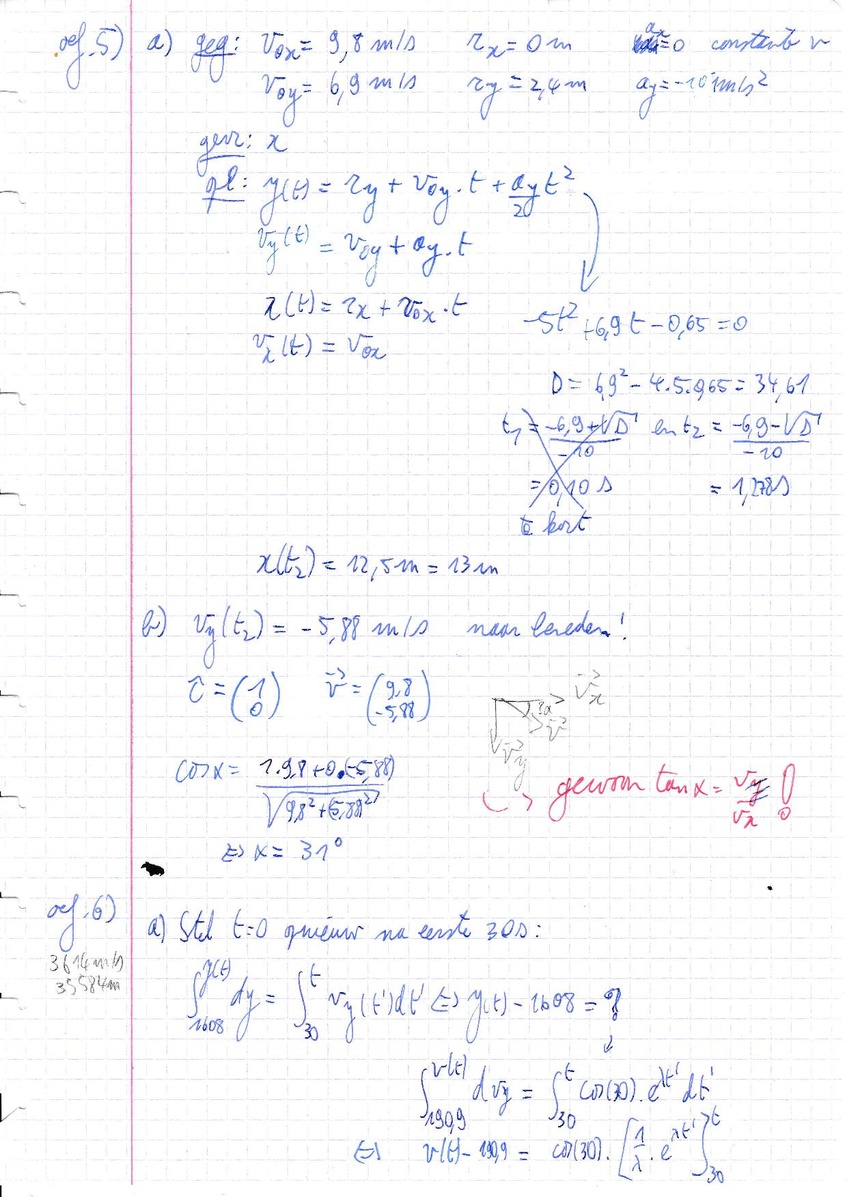 oef. 5) a) geg: v0x = 9,8 m/s rx = 0 m ax = 0 constante v
v0y = 6,9 m/s ry = 2,4 m ay = -10 m/s²
gevr: x
opl: y(t) = ry + v0y . t + ay t² / 2
vy(t) = v0y + ay . t
x(t) = rx + v0x . t
-5t² + 6,9 t - 0,65 = 0
vx(t) = v0x
D = 6,9² - 4.5.0,65 = 34,61
t1 = (-6,9 + √D) / -10 en t2 = (-6,9 - √D) / -10
= 0,10 s = 1,278 s
te kort
x(t2) = 12,5 m = 13 m
b) vy(t2) = -5,88 m/s naar beneden!
v⃗ = (9,8 -5,88) v⃗x
α v⃗
v⃗y
cos α = (1.9,8 + 0.(-5,88)) / √(9,8² + (-5,88)²)
gewoon tan α = vy / vx !
⇔ α = 31°
oef. 6) a) Stel t=0 opnieuw na eerste 30s:
3614 m/s
35584 m
∫1608^y(t) dy = ∫30^t vy(t')dt' ⇔ y(t) - 1608 = ?
∫190,9^v(t) dvy = ∫30^t cos(30) . e^λt' dt'
⇔ v(t) - 190,9 = cos(30) . [1/λ . e^λt']30^t